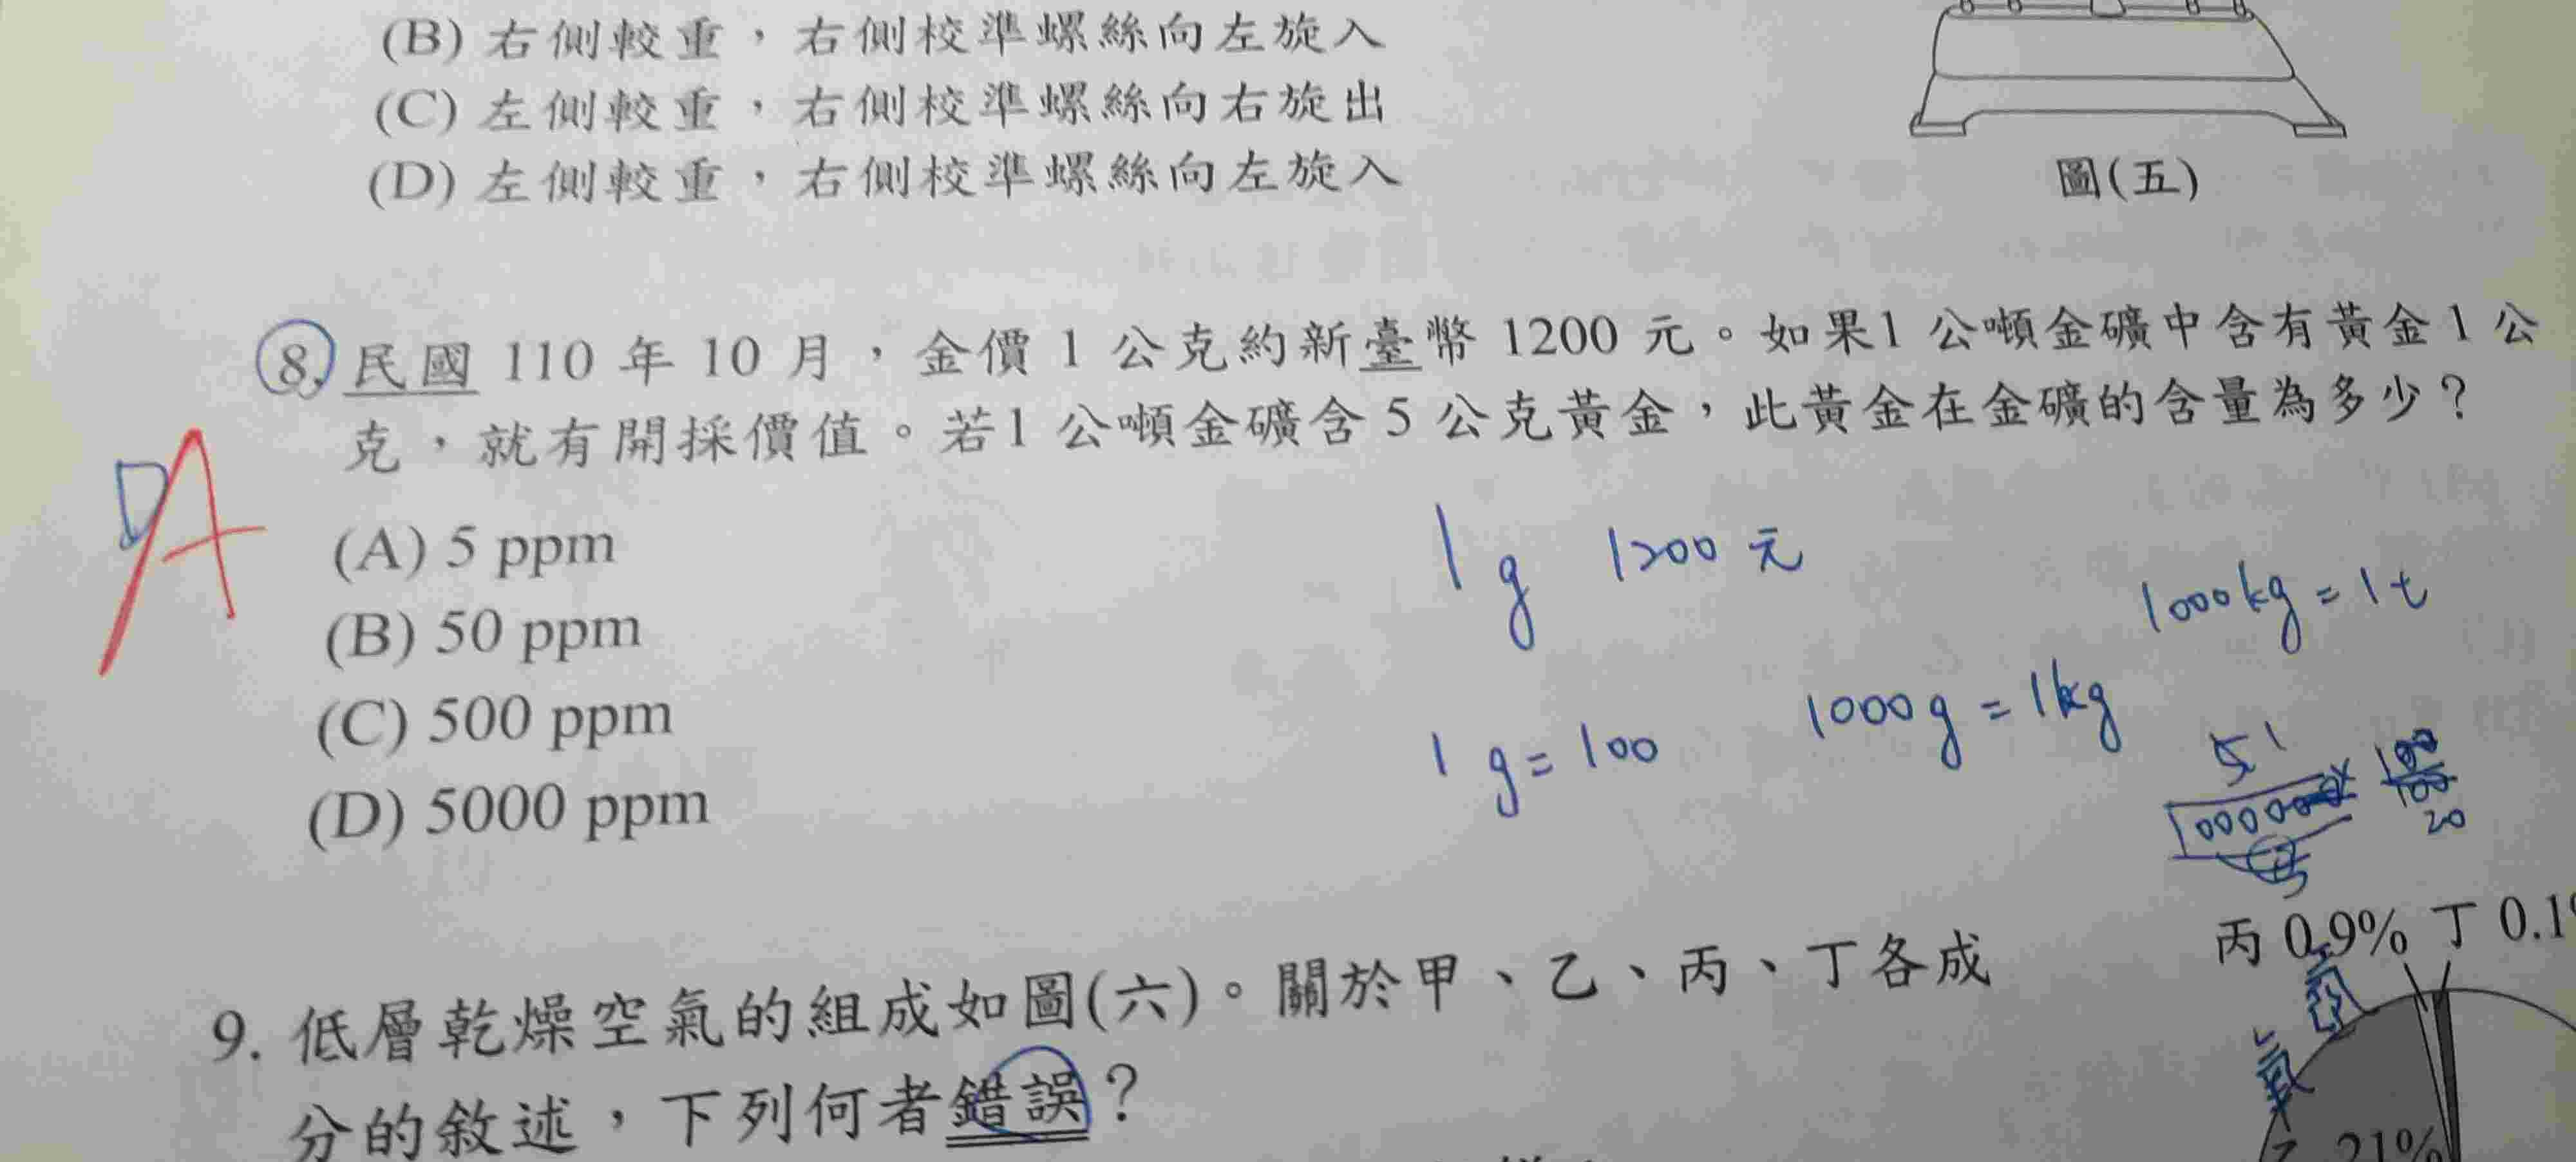 (B) 右側較重，右側校準螺絲向左旋入
(C) 左側較重，右側校準螺絲向右旋出
(D) 左側較重，右側校準螺絲向左旋入
圖(五)
8. 民國 110 年 10 月，金價 1 公克約新臺幣 1200 元。如果1 公噸金礦中含有黃金 1 公
克，就有開採價值。若1 公噸金礦含 5 公克黃金，此黃金在金礦的含量為多少？
D
A
(A) 5 ppm
(B) 50 ppm
(C) 500 ppm
(D) 5000 ppm
1g 1200 元
1000kg = 1t
1g = 100
1000g = 1kg
20
丙 0.9% 丁 0.1
9. 低層乾燥空氣的組成如圖(六)。關於甲、乙、丙、丁各成
分的敘述，下列何者錯誤？
氧
乙 21%